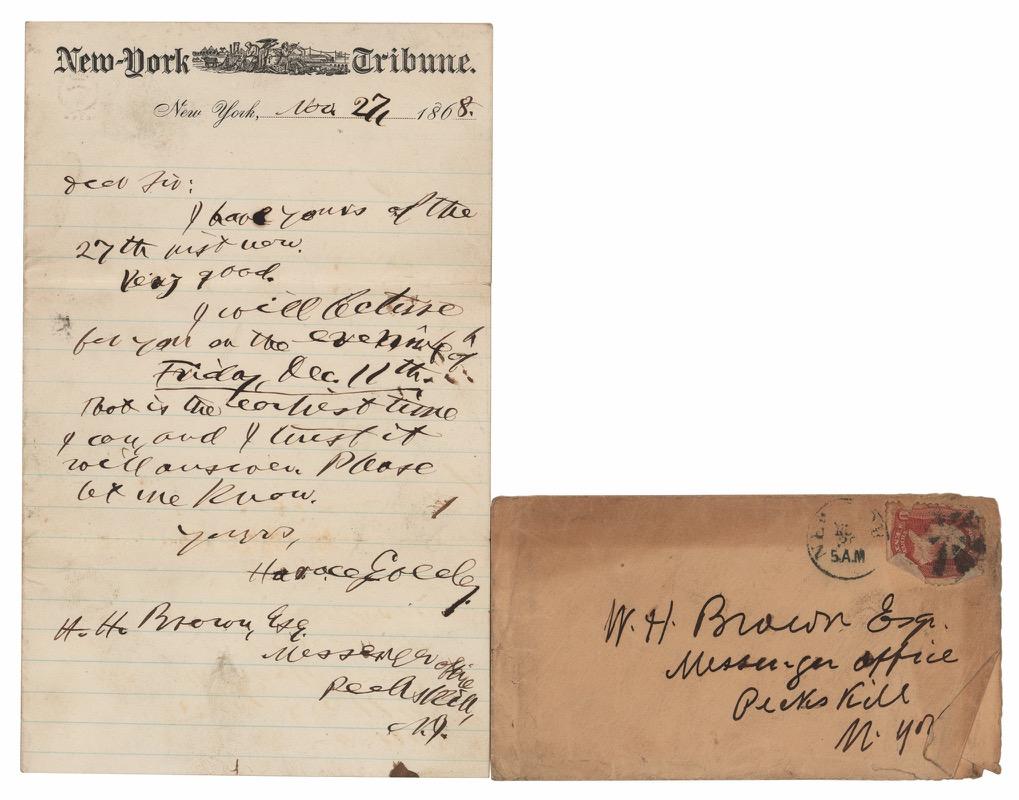 New-York Tribune.
New York, Nov 27, 1868.
Dear Sir:
I have yours of the
27th inst now.
Very good.
I will lecture
for you on the evening of
Friday, Dec. 11th.
That is the earliest time
I can, and I trust it
will answer. Please
let me know.
Yours,
Horace Greeley
H. H. Brown, Esq.
Messenger office
Peekskill,
N.Y.
5 A.M
W. H. Brown Esq.
Messenger office
Peekskill
N. York